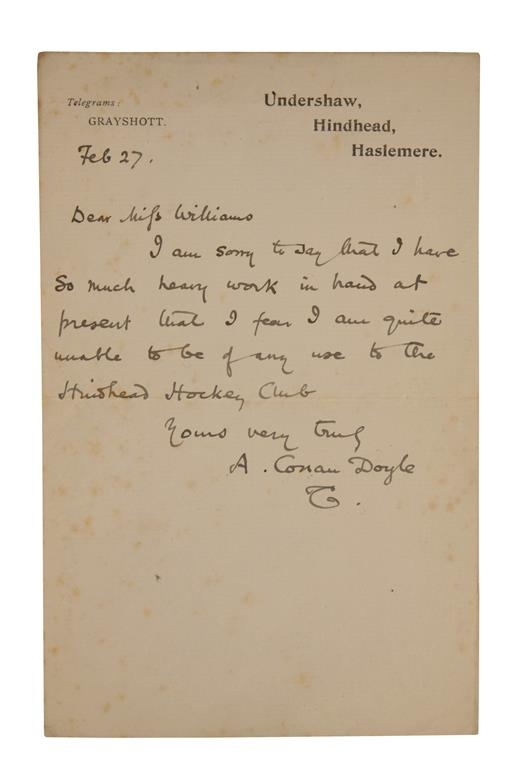 Telegrams:
GRAYSHOTT.
Undershaw,
Hindhead,
Haslemere.
Feb 27.
Dear Miss Williams
I am sorry to say that I have
so much heavy work in hand at
present that I fear I am quite
unable to be of any use to the
Hindhead Hockey Club
Yours very truly
A. Conan Doyle